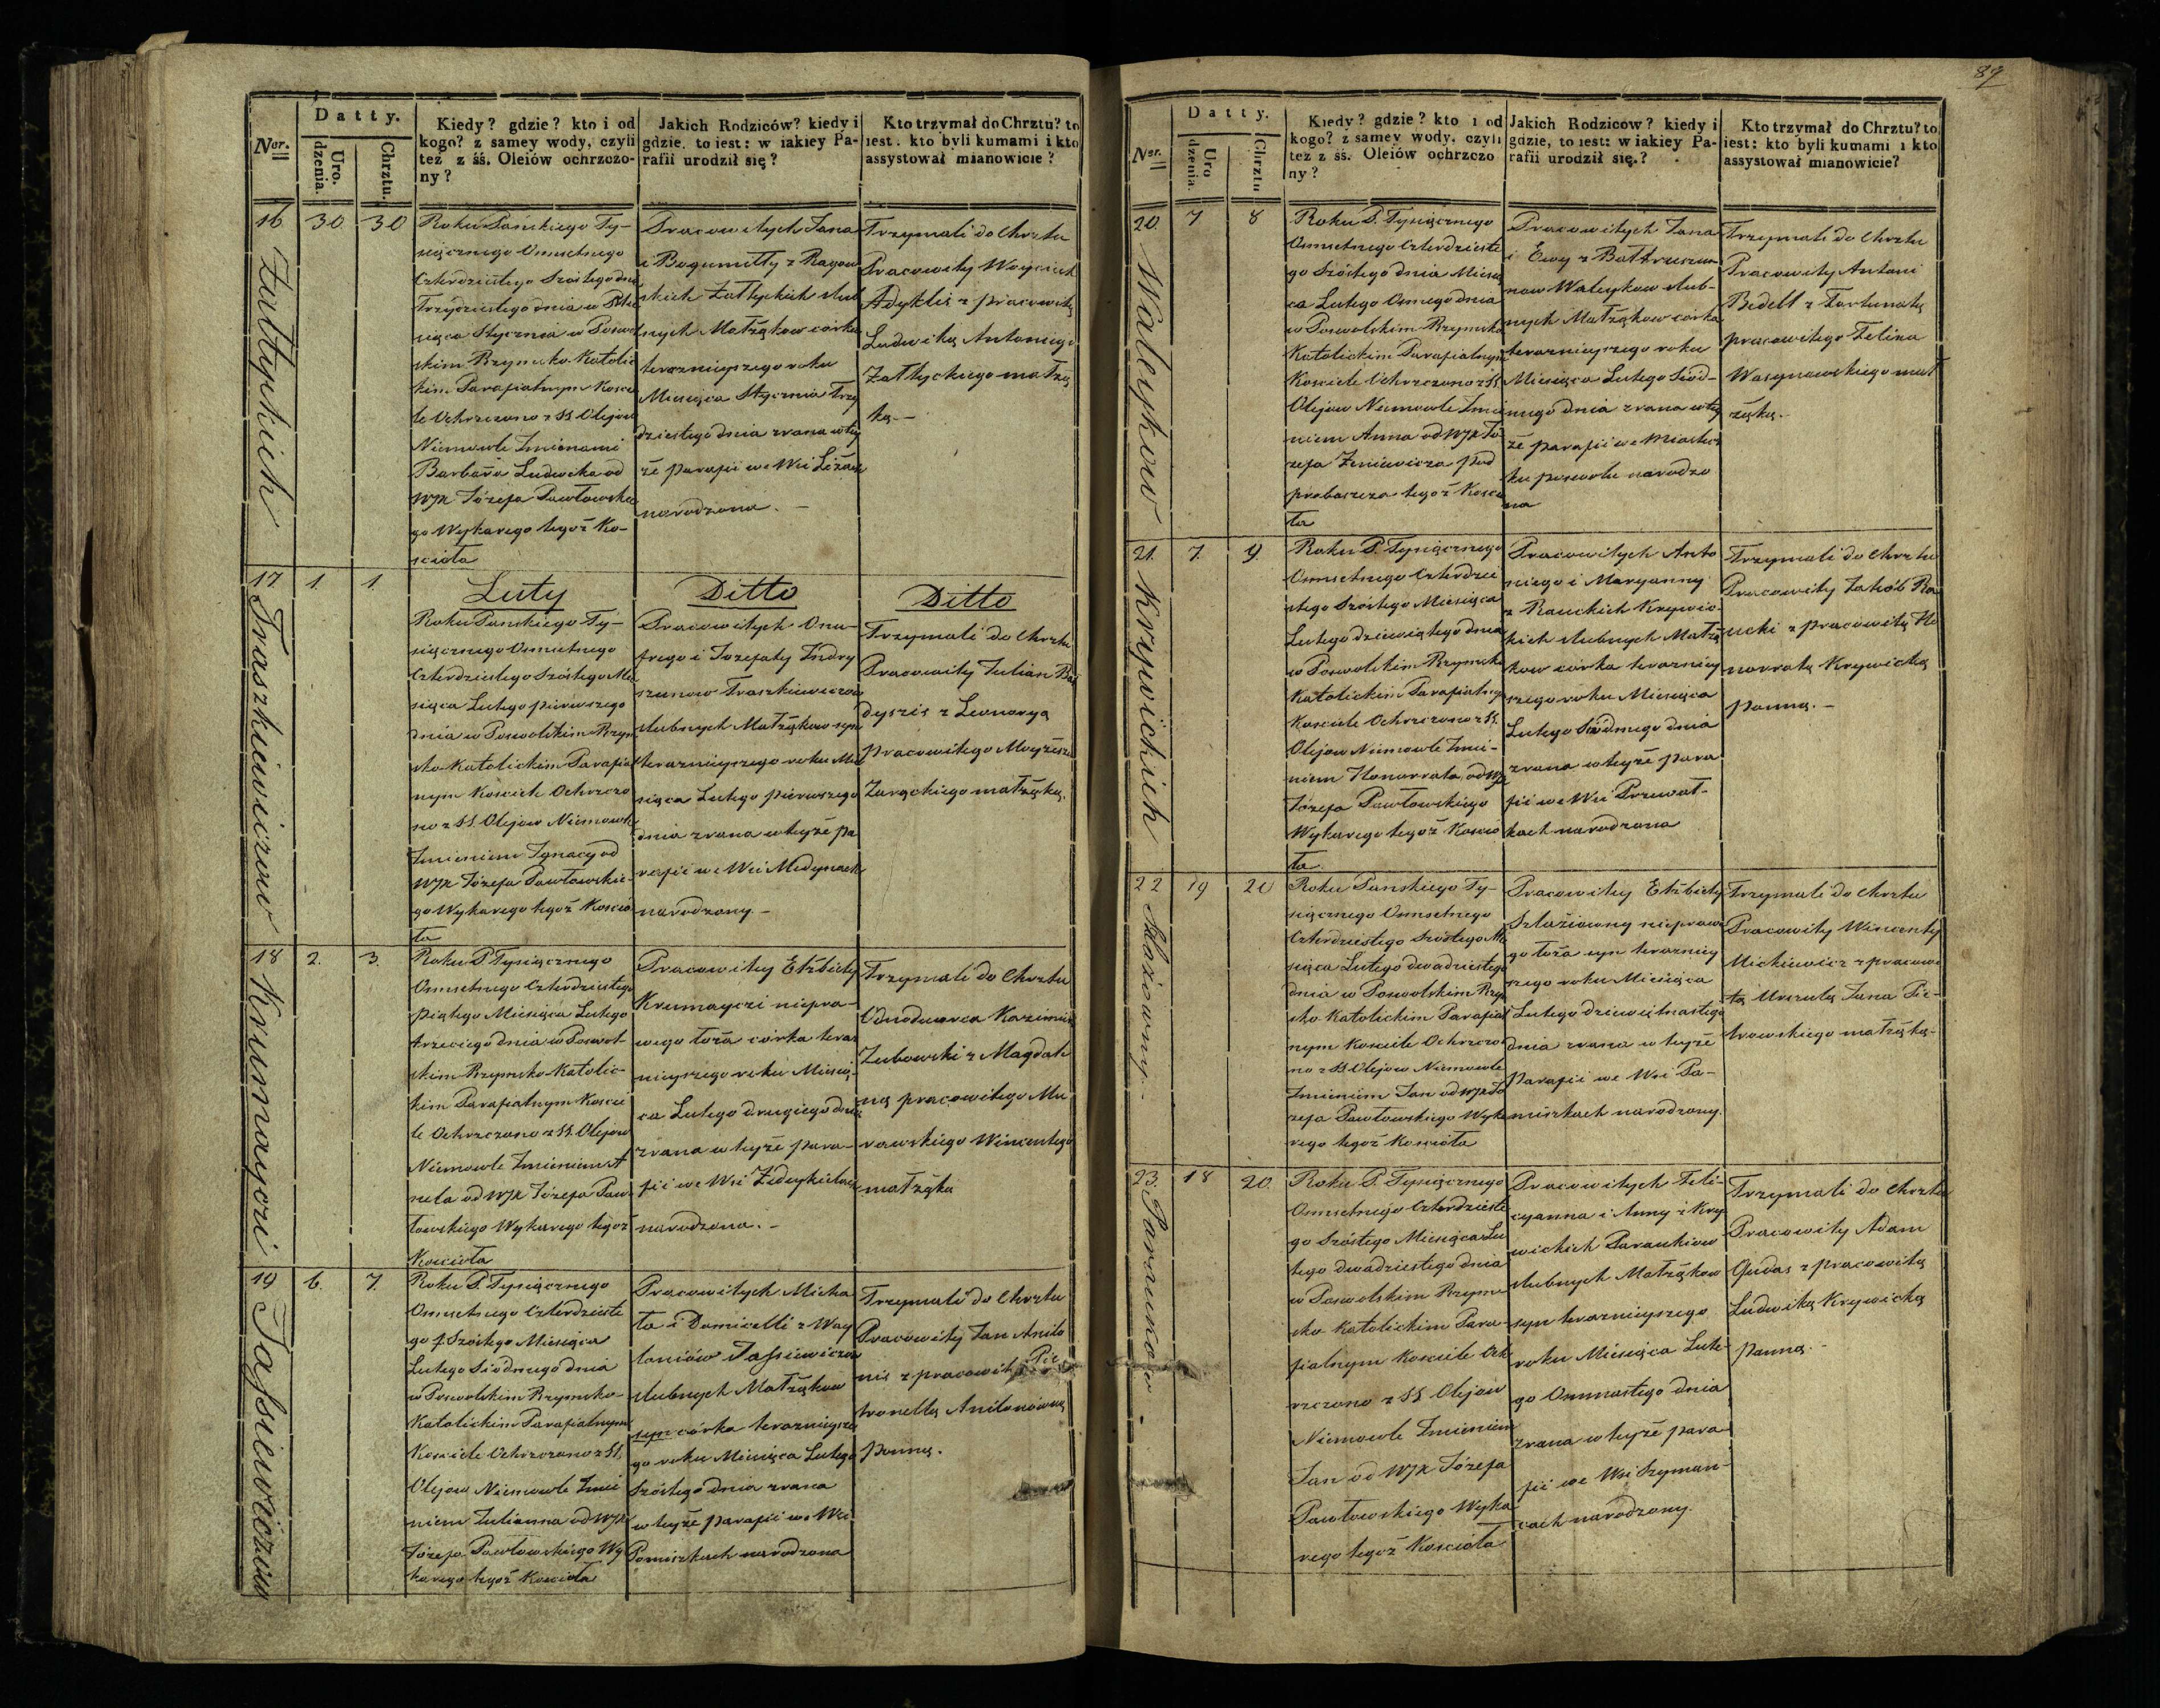 Datty.
Ner.
Uro.
dzenia.
Chrztu.
Kiedy? gdzie? kto i od
kogo? z samey wody, czyli
też z śś. Oleiów ochrzczo-
ny?
Jakich Rodziców? kiedy i
gdzie, to iest: w iakiey Pa-
rafii urodził się?
Kto trzymał do Chrztu? to
iest: kto byli kumami i kto
assystował mianowicie?
16
Żałtyckich
30
30
Roku Pańskiego Ty-
siącznego Osmsetnego
Czterdziestego Szóstego dnia
Trzydziestego dnia w
siąca Stycznia w Poswol
skim Rzymsko-Katolic
kim Parafialnym Koscie
le Ochrzczono z SS Olejow
Niemowle Imionami
Barbara Ludwika od
WJX Józefa Pawłowskie
go Wykarego tegoż Ko-
scioła
Pracowitych Jana
i Bogumiłły z Ragow
skich Żałtyckich slub
nych Małżąkow corka
terazniejszego roku
Miesiąca Stycznia Trzy
dziestego dnia zrana w tey
że parafii we Wsi
narodzona. -
Trzymali do Chrztu
Pracowity Woyciech
Adyklis z pracowitą
Ludwiką Antoniego
Żałtyckiego małżą
ką. -
17
Traszkiewiczow
1.
1.
Luty
Roku Panskiego Ty-
siącznego Osmsetnego
Czterdziestego Szóstego Mie
siąca Lutego pierwszego
dnia w Poswolskim Rzym
sko-Katolickim Parafial
nym Kosciele Ochrzczo
no z SS. Olejow Niemowle
Imieniem Ignacy od
WJX Józefa Pawłowskie-
go Wykarego tegoż Koscio
ła
Ditto
Pracowitych Onu-
frego i Jozefaty Indry
szunow Traszkiewiczow
slubnych Małżąkow syn
terazniejszego roku Mie
siąca Lutego pierwszego
dnia zrana w teyże pa
rafii we Wsi Medynach
narodzony. -
Ditto
Trzymali do Chrztu
Pracowity Julian Ba
dyszis z Leonorą
Pracowitego Moyżesza
Zarąckiego małżąką.
18
Krumayczi
2.
3.
Roku P. Tysiącznego
Osmsetnego Czterdziestego
piątego Miesiąca Lutego
trzeciego dnia w Poswol-
skim Rzymsko-Katolic-
kim Parafialnym Koscie
le Ochrzczono z SS. Olejow
Niemowle Imieniem A
niela od WJX Józefa Paw
łowskiego Wykarego tegoż
Koscioła
Pracowitey Elżbiety
Krumayczi niepra-
wego łoża córka teraz
nieyszego roku Miesią-
ca Lutego drugiego dnia
zrana w teyże para-
fii we Wsi Żideykielach
narodzona. -
Trzymali do Chrztu
Odnodworca Kazimierz
Zubowski z Magdale
ną pracowitego Mu
rawskiego Wincentego
małżąka
19
Jasiewiczow
6.
7.
Roku P. Tysiącznego
Osmsetnego Czterdzieste
go Szóstego Miesiąca
Lutego Siódmego dnia
w Poswolskim Rzymsko-
Katolickim Parafialnym
Kosciele Ochrzczono z SS.
Olejow Niemowle Imie
niem Julianna od WJX
Józefa Pawłowskiego Wy
karego tegoż Koscioła
Pracowitych Micha
ła i Domicelli z Way
toniów Jasiewiczow
slubnych Małżąkow
syn córka terazniejsze
go roku Miesiąca Lutego
Szóstego dnia zrana
w teyże parafii we Wsi
Pomiszkach narodzona
Trzymali do Chrztu
Pracowity Jan Anilo
nis z pracowitą Pie
tronellą Anilonówną
panną.
89
Datty.
Ner.
Uro
dzenia.
Chrztu
Kiedy? gdzie? kto i od
kogo? z samey wody, czyli
też z śś. Oleiów ochrzczo
ny?
Jakich Rodziców? kiedy i
gdzie, to iest: w iakiey Pa-
rafii urodził się?
Kto trzymał do Chrztu? to
iest: kto byli kumami i kto
assystował mianowicie?
20.
Waleykow
7
8
Roku P. Tysiącznego
Osmsetnego Czterdzieste
go Szóstego dnia Miesią
ca Lutego Osmego dnia
w Poswolskim Rzymsko
Katolickim Parafialnym
Kosciele Ochrzczono z SS
Olejow Niemowle Imie
niem Anna od WJX Jó
zefa pod
probaszcza tegoż Koscio
ła
Pracowitych Jana
i Ewy z Bałtruszun
now Waleykow slub-
nych Małżąkow córka
terazniejszego roku
Miesiąca Lutego Siód-
mego dnia zrana w tey
że parafii we Miastecz
ku poswolu narodzo
na
Trzymali do Chrztu
Pracowity Antoni
Bedelt z Fortunatą
pracowitego Felixa
Wasynowskiego mał
żąką.
21.
Krywickich
7.
9.
Roku P. Tysiącznego
Osmsetnego Czterdzie
stego Szóstego Miesiąca
Lutego dziewiątego dnia
w Poswolskim Rzymsko
Katolickim Parafialnym
Kosciele Ochrzczono z SS.
Olejow Niemowle Imie-
niem Honorrata, od WJX
Józefa Pawłowskiego
Wykarego tegoż Koscio
ła
Pracowitych Anto
niego i Maryanny
z Rauckich Krywic-
kich slubnych Małżą
kow córka terazniey
szego roku Miesiąca
Lutego Siódmego dnia
zrana w teyże para
fii we Wsi Przewał-
kach narodzona
Trzymali do Chrztu
Pracowity Jakób Ra
ucki z pracowitą Ho
norratą Krywicką
panną. -
22
Szlaziowny.
19
20
Roku Panskiego Ty-
siącznego Osmsetnego
Czterdziestego Szóstego Mie
siąca Lutego dwadziestego
dnia w Poswolskim Rzym
sko Katolickim Parafial
nym Kosciele Ochrzczo-
no z SS Olejow Niemowle
Imieniem Jan od WJX Jó
zefa Pawłowskiego Wyka
rego tegoż Koscioła
Pracowitey Elżbiety
Szlaziowny nieprawe
go łoża syn terazniey
szego roku Miesiąca
Lutego dziewiętnastego
dnia zrana w teyże
Parafii we Wsi Pa-
miszkach narodzony.
Trzymali do Chrztu
Pracowity Wincenty
Mickiewicz z pracowi
tą Urszulą Jana Pie-
trowskiego małżąką.
23.
Paraukow
18
20.
Roku P. Tysiącznego
Osmsetnego Czterdzieste
go Szóstego Miesiąca Lu
tego dwadziestego dnia
w Poswolskim Rzym
sko Katolickim Para-
fialnym Kosciele Och
rzczono z SS Olejow
Niemowle Imieniem
Jan od WJX Józefa
Pawłowskiego Wyka
rego tegoż Koscioła
Pracowitych Feli-
cyanna i Anny z Kry
wickich Paraukow
slubnych Małżąkow
syn terazniejszego
roku Miesiąca Lute-
go Osmnastego dnia
zrana w teyże para
fii we Wsi Szyman-
cach narodzony.
Trzymali do Chrztu
Pracowity Adam
Gudas z pracowitą
Ludwiką Krywicką
panną. -